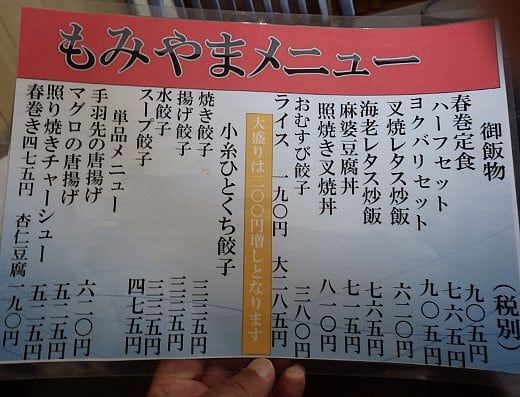 もみやまメニュー
御飯物 (税別)
春巻定食 九〇五円
ハーフセット 七六五円
ヨクバリセット 九〇五円
叉焼レタス炒飯 六二〇円
海老レタス炒飯 七六五円
麻婆豆腐丼 七一五円
照焼き叉焼丼 八一〇円
おむすび餃子 三八〇円
ライス 一九〇円 大二八五円
大盛りは二〇〇円増しとなります
小糸ひとくち餃子
焼き餃子 三三五円
揚げ餃子 三三五円
水餃子 三三五円
スープ餃子 四七五円
単品メニュー
手羽先の唐揚げ 六二〇円
マグロの唐揚げ 五二五円
照り焼きチャーシュー 五二五円
春巻き四七五円 杏仁豆腐 一九〇円